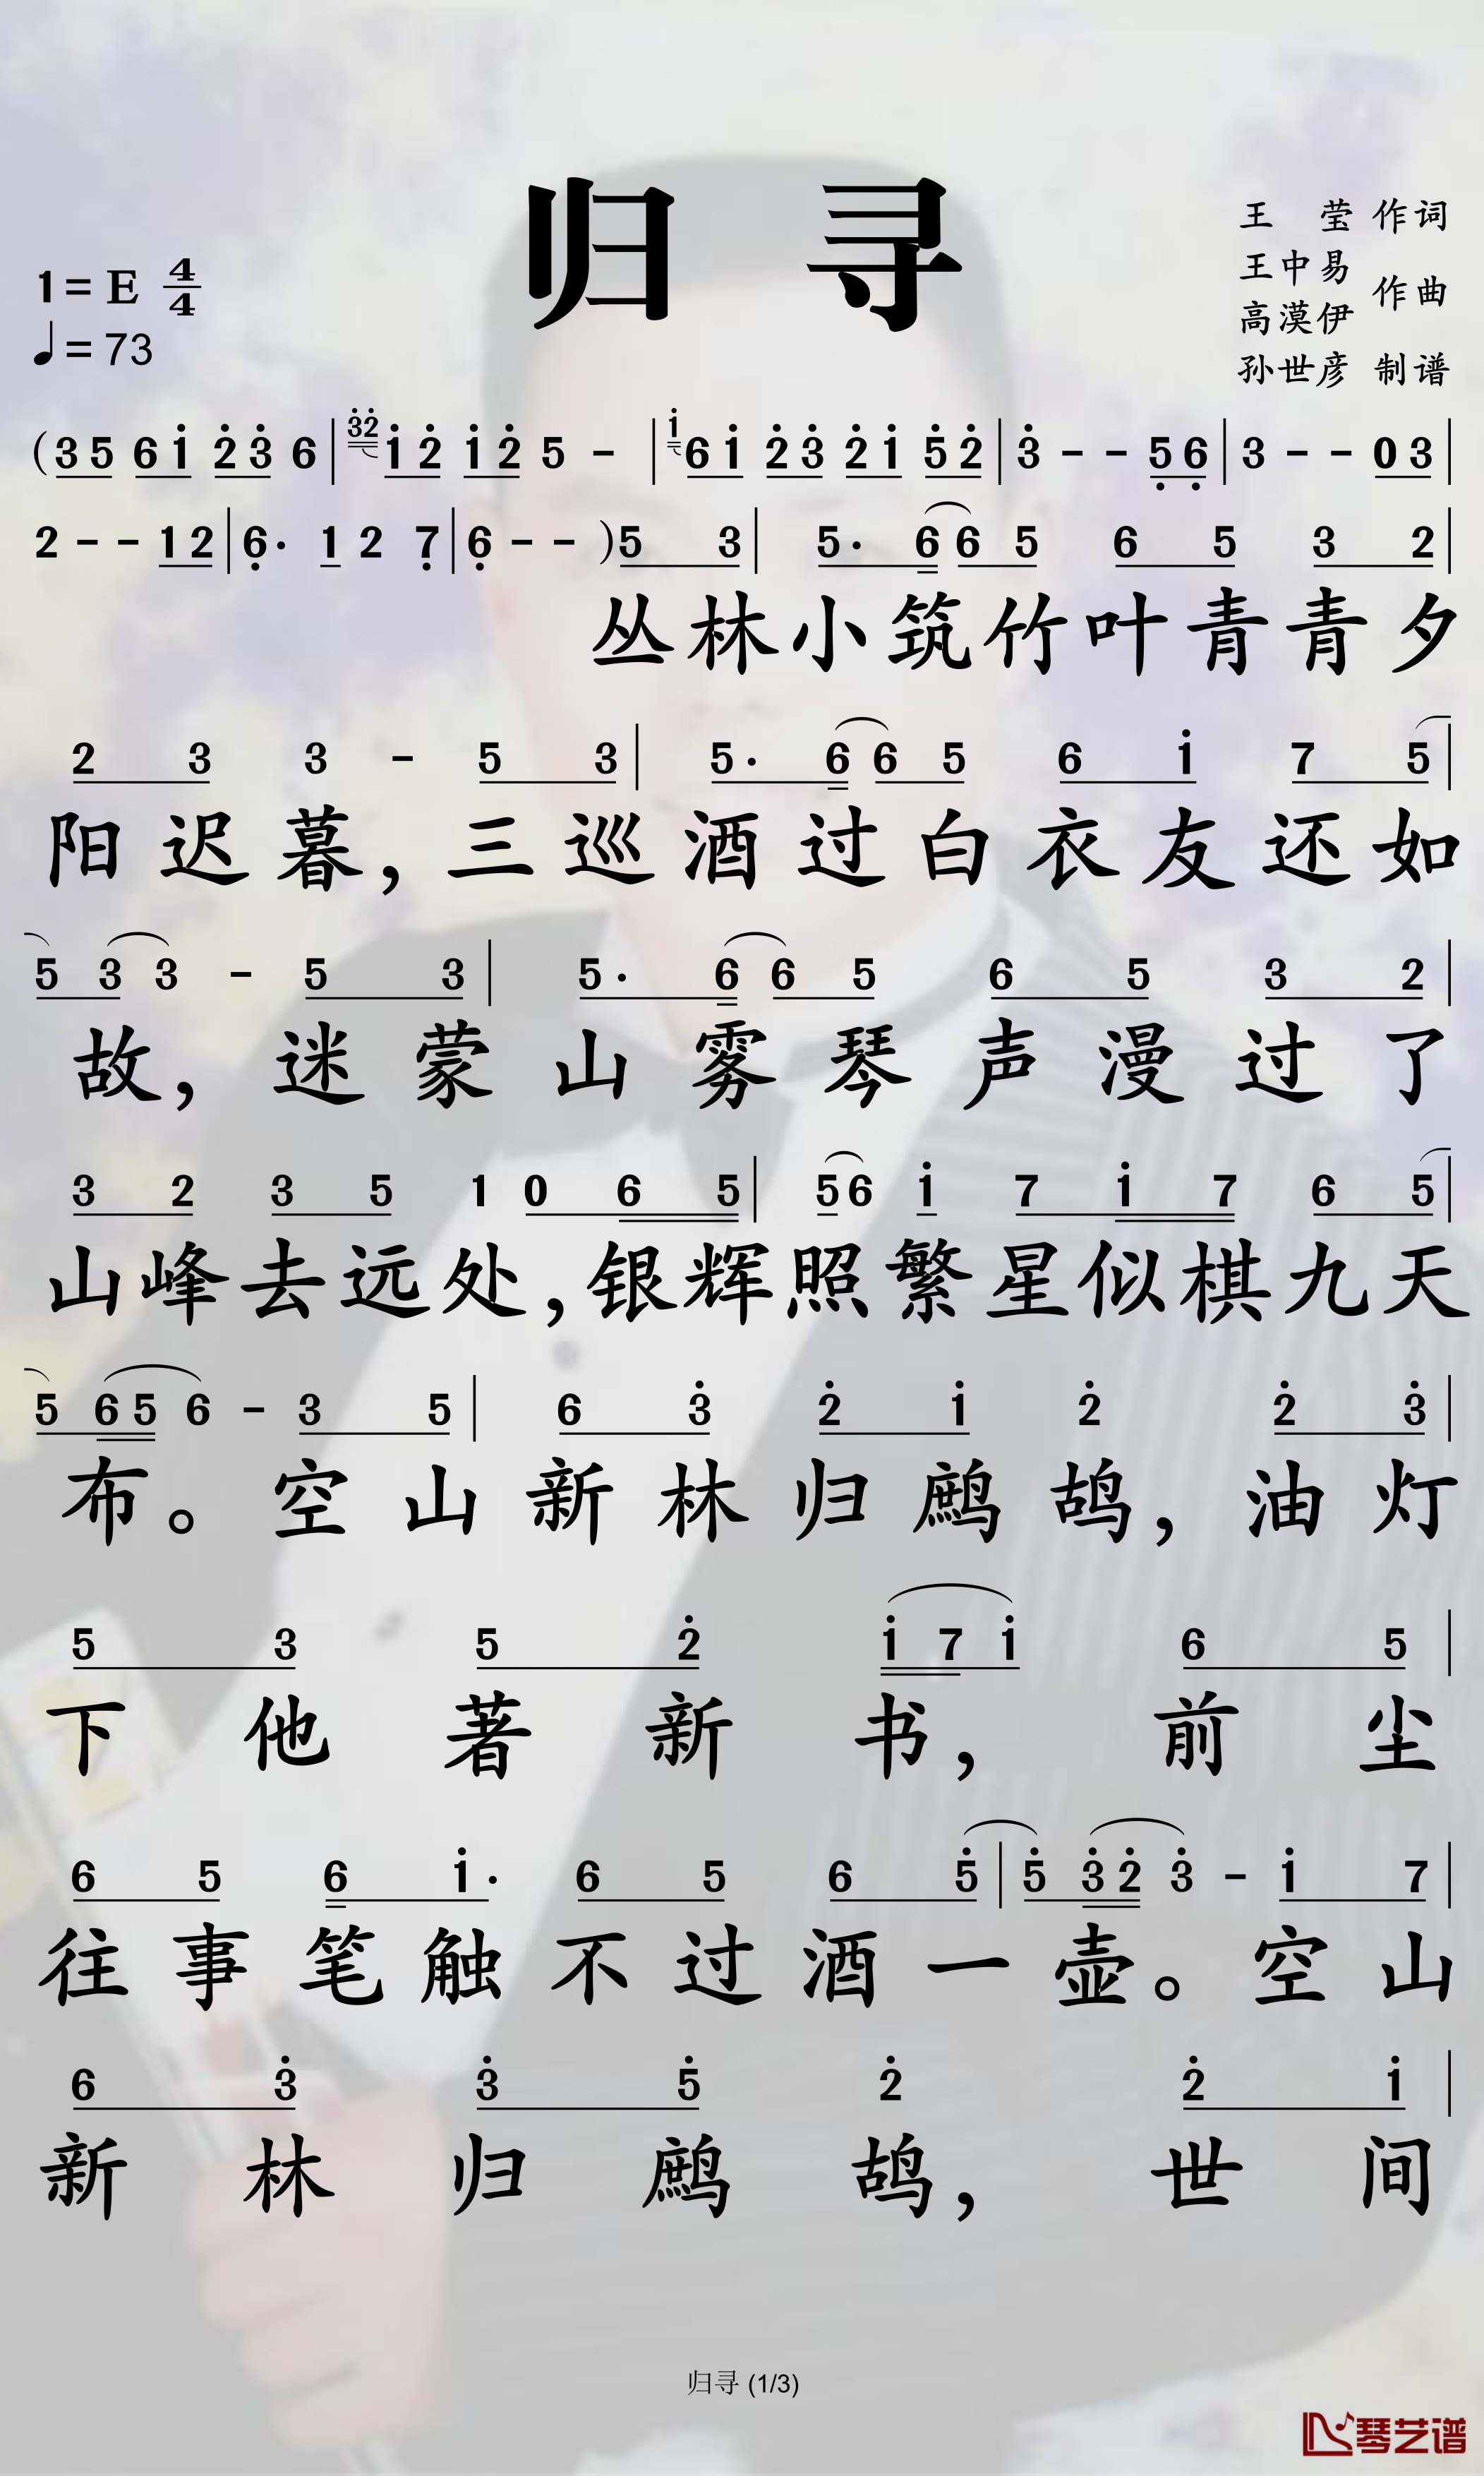 归 寻
王 莹 作词
王中易
高漠伊 作曲
孙世彦 制谱
1=E 4/4
♩=73
(3 5 6 1̇ 2̇ 3̇ 6 | 3̇2̇ 1̇ 2̇ 1̇ 2̇ 5 - | 1̇ 6 1̇ 2̇ 3̇ 2̇ 1̇ 5̇ 2̇ | 3̇ - - 5̣ 6̣ | 3 - - 0 3 |
2 - - 1 2 | 6̣· 1 2 7̣ | 6̣ - - ) 5 3 | 5· 6 6 5 6 5 3 2 |
丛林小筑竹叶青青夕
2 3 3 - 5 3 | 5· 6 6 5 6 1̇ 7 5 |
阳迟暮，三巡酒过白衣友还如
5 3 3 - 5 3 | 5· 6 6 5 6 5 3 2 |
故，迷蒙山雾琴声漫过了
3 2 3 5 1 0 6 5 | 5 6 1̇ 7 1̇ 7 6 5 |
山峰去远处，银辉照繁星似棋九天
5 6 5 6 - 3 5 | 6 3̇ 2̇ 1̇ 2̇ 2̇ 3̇ |
布。空山新林归鹧鸪，油灯
5 3 5 2̇ 1̇ 7 1̇ 6 5 |
下他著新书，前尘
6 5 6 1̇· 6 5 6 5̇ | 5̇ 3̇ 2̇ 3̇ - 1̇ 7 |
往事笔触不过酒一壶。空山
6 3̇ 3̇ 5̇ 2̇ 2̇ 1̇ |
新林归鹧鸪，世间
归寻 (1/3)
琴艺谱